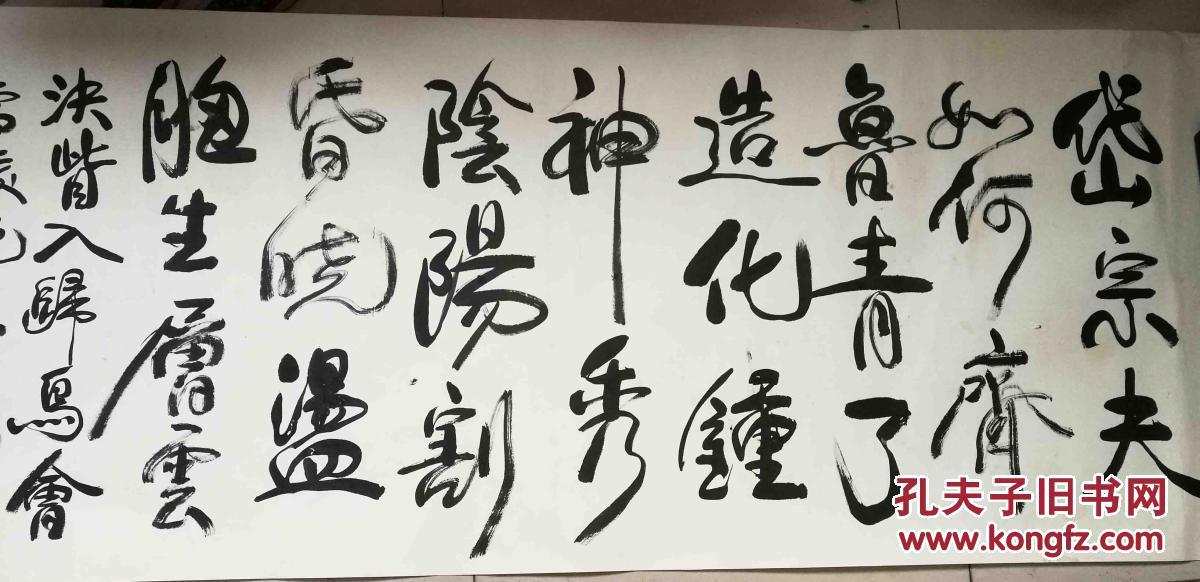 岱宗夫
如何齊
魯青了
造化鍾
神秀
陰陽割
昏晓盪
胸生層雲
決眥入歸鳥會
孔夫子旧书网
www.kongfz.com